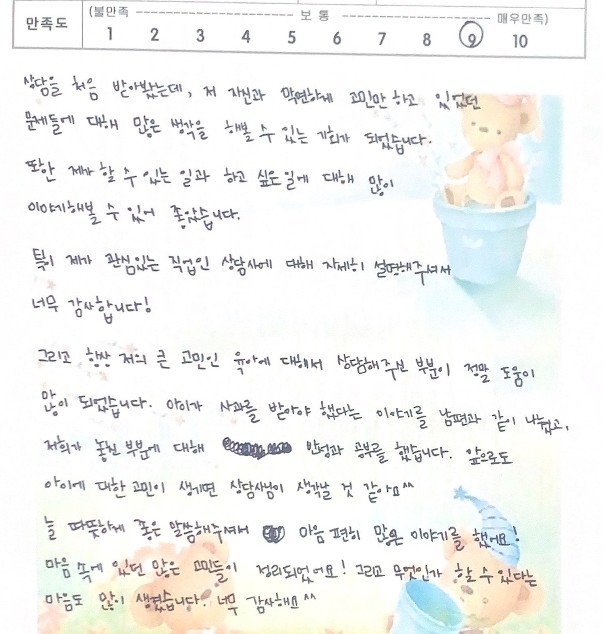 만족도 (불만족 보통 매우만족)
1 2 3 4 5 6 7 8 9 10
상담을 처음 받아봤는데, 저 자신과 막연하게 고민만 하고 있었던
문제들에 대해 많은 생각을 해볼 수 있는 기회가 되었습니다.
또한 제가 할 수 있는 일과 하고 싶은일에 대해 많이
이야기해볼 수 있어 좋았습니다.
특히 제가 관심있는 직업인 상담사에 대해 자세히 설명해주셔서
너무 감사합니다!
그리고 항상 저의 큰 고민인 육아에 대해서 상담해주신 부분이 정말 도움이
많이 되었습니다. 아이가 사과를 받아야 했다는 이야기를 남편과 같이 나눴고,
저희가 놓친 부분에 대해 반성과 공부를 했습니다. 앞으로도
아이에 대한 고민이 생기면 상담사님이 생각날 것 같아요^^
늘 따뜻하게 좋은 말씀해주셔서 마음 편히 많은 이야기를 했어요!
마음 속에 있던 많은 고민들이 정리되었어요! 그리고 무엇인가 할 수 있다는
마음도 많이 생겼습니다. 너무 감사해요^^